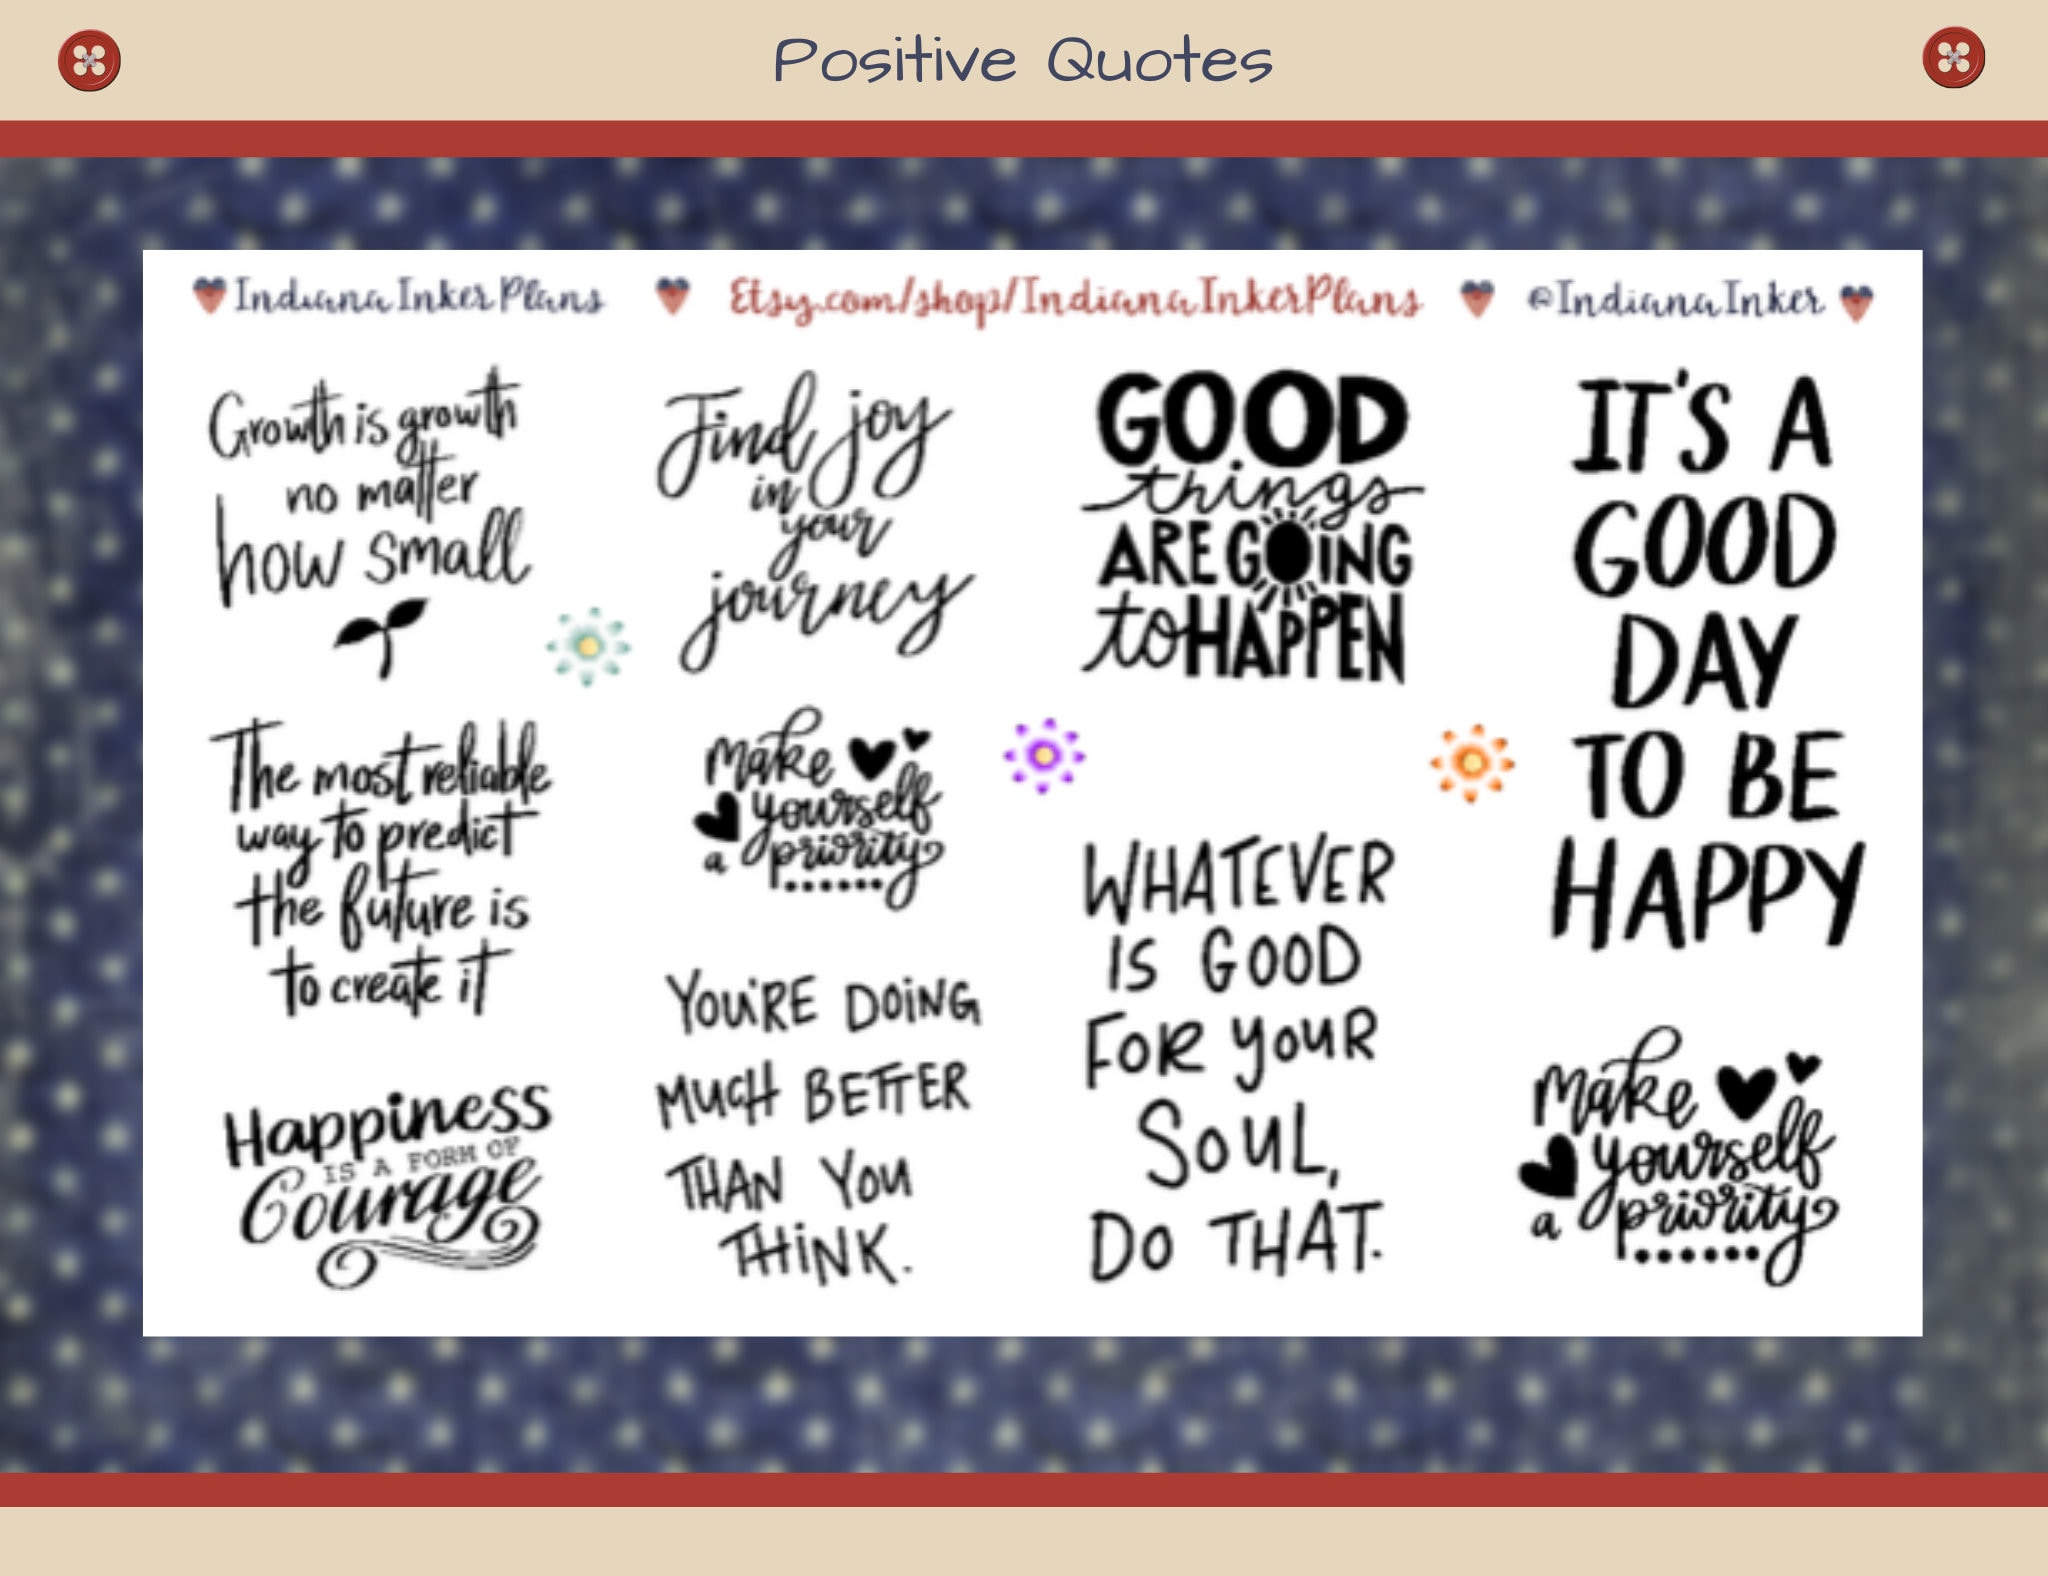 Positive Quotes
IndianaInkerPlans
Etsy.com/shop/IndianaInkerPlans
@IndianaInker
Growth is growth
no matter
how small
The most reliable
way to predict
the future is
to create it
Happiness
IS A FORM OF
Courage
Find joy
in
your
journey
Make
yourself
a priority
YOU'RE DOING
MUCH BETTER
THAN YOU
THINK.
GOOD
things
ARE GOING
to HAPPEN
WHATEVER
IS GOOD
FOR YOUR
SOUL,
DO THAT.
IT'S A
GOOD
DAY
TO BE
HAPPY
Make
yourself
a priority